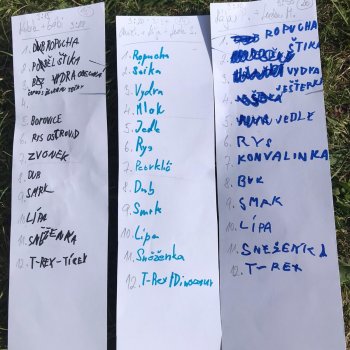 1. ROPUCHA
2. ŠTIKA
3. VYDRA
5. BOROVICE
6. RYS OSTROVID
7. ZVONEK
8. DUB
9. SMRK
10. LÍPA
11. SNĚŽENKA
12. T-REX-TÍREX
1. Ropucha
2. Štika
3. Vydra
4. Mlok
5. Jedle
6. Rys
7. Petrklíč
8. Dub
9. Smrk
10. Lípa
11. Sněženka
12. T-Rex/Dinosaur
1. ROPUCHA
2. ŠTIKA
3. VYDRA
4. JEŠTĚRKA
5. JEDLE
6. RYS
7. KONVALINKA
8. BUK
9. SMRK
10. LÍPA
11. SNEŽENKA
12. T-REX